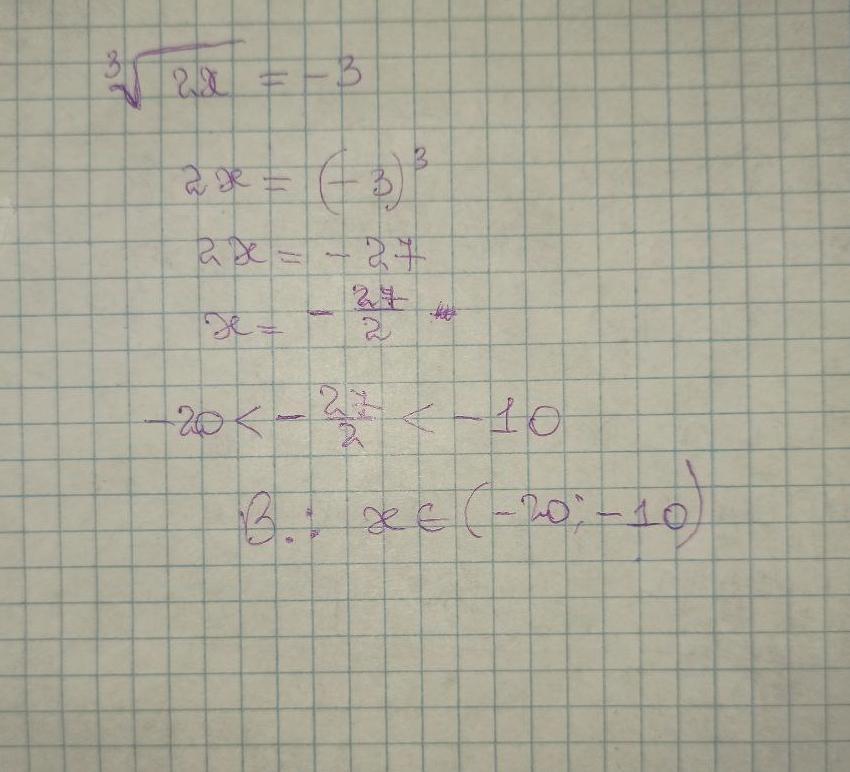 ∛2x = -3
2x = (-3)³
2x = -27
x = - 27/2
-20 < - 27/2 < -10
В.: x ∈ (-20; -10)